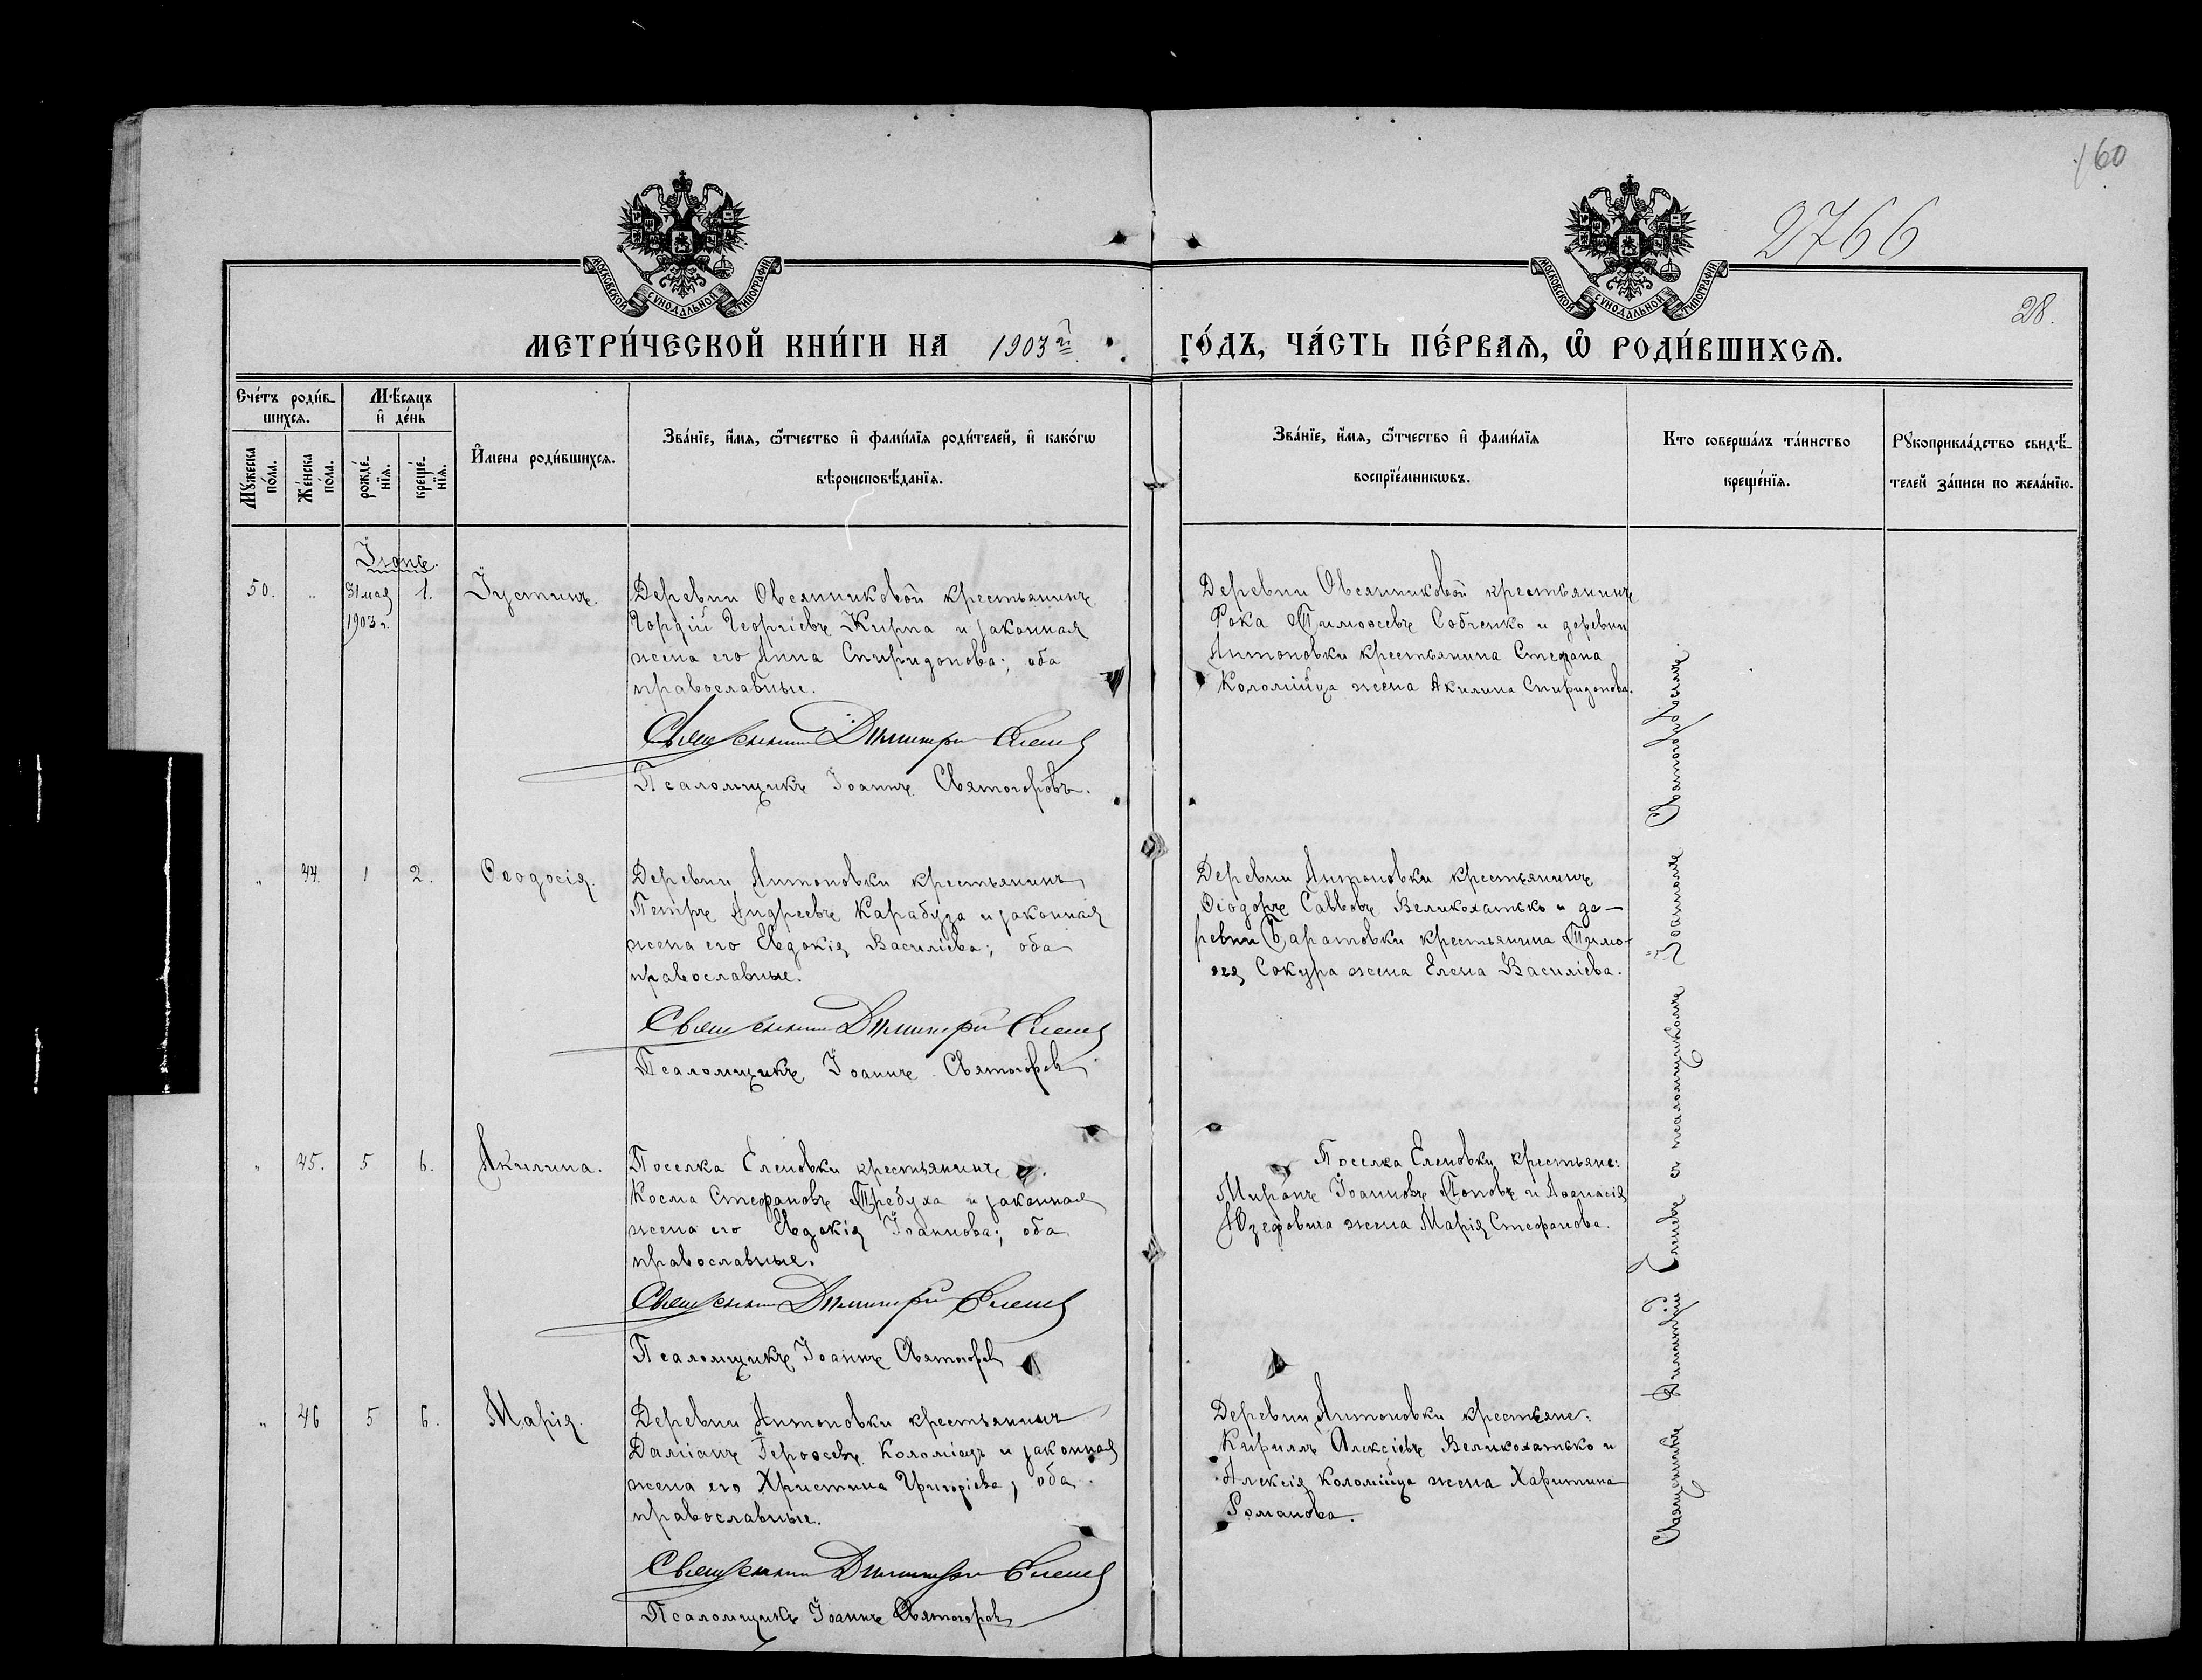 160
2766
28.
МОСКОВСКОЙ СѴНОДАЛЬНОЙ ТИПОГРАФІИ
МОСКОВСКОЙ СѴНОДАЛЬНОЙ ТИПОГРАФІИ
МЕТРИ́ЧЕСКОЙ КНИ́ГИ НА 1903й ГО́ДЪ, ЧА́СТЬ ПЕ́РВАѦ, Ѡ РОДИ́ВШИХСѦ.
Сче́тъ роди́в-
шихсѧ.
Мѣ́сѧцъ
и҆ де́нь
Мꙋ́жеска
по́ла.
Же́нска
по́ла.
рожде́-
нїѧ.
креще́-
нїѧ.
И҆мена роди́вшихсѧ.
Зва́нїе, и҆́мѧ, ѻ҆́тчество и҆ фами́лїѧ роди́телей, и҆ како́гѡ
вѣроисповѣ́данїѧ.
Зва́нїе, и҆́мѧ, ѻ҆́тчество и҆ фами́лїѧ
воспрїе́мникѡвъ.
Кто соверша́лъ та́инство
креще́нїѧ.
Рꙋкоприкла́дство свидѣ́-
телей за́писи по жела́нїю.
Іюнь.
50. " 31 мая 1. Іустинъ.
1903 г.
Деревни Овсянниковой крестьянинъ
Гордій Георгіевъ Кирпа и законная
жена его Анна Спиридонова; оба
православные.
Священникъ Димитрій Еленевъ
Псаломщикъ Іоаннъ Святогоровъ.
Деревни Овсянниковой крестьянинъ
Фока Тимоѳеевъ Собченко и деревни
Антоновки крестьянина Стефана
Коломійца жена Акилина Спиридонова.
" 44. 1 2. Ѳеодосія.
Деревни Антоновки крестьянинъ
Петръ Андреевъ Карабуза и законная
жена его Евдокія Василіева; оба
православные.
Священникъ Димитрій Еленевъ
Псаломщикъ Іоаннъ Святогоровъ
Деревни Антоновки крестьянинъ
Ѳеодоръ Саввовъ Великохатько и де-
ревни Баратовки крестьянина Тимо-
ѳея Сокура жена Елена Василіева.
" 45. 5 6. Акилина.
Поселка Еленовки крестьянинъ
Косма Стефановъ Требуха и законная
жена его Евдокія Іоаннова; оба
православные.
Священникъ Димитрій Еленевъ
Псаломщикъ Іоаннъ Святогоровъ
Поселка Еленовки крестьяне:
Миронъ Іоанновъ Поповъ и Аѳанасія
Юзефовича жена Марія Стефанова.
" 46 5 6. Марія.
Деревни Антоновки крестьянинъ
Даміанъ Героѳеевъ Коломіецъ и законная
жена его Христина Григоріева; оба
православные.
Священникъ Димитрій Еленевъ
Псаломщикъ Іоаннъ Святогоровъ
Деревни Антоновки крестьяне:
Кириллъ Алексіевъ Великохатько и
Алексія Коломійца жена Харитина
Романова.
Священникъ Димитрій Еленевъ съ псаломщикомъ Іоанномъ Святогоровымъ.